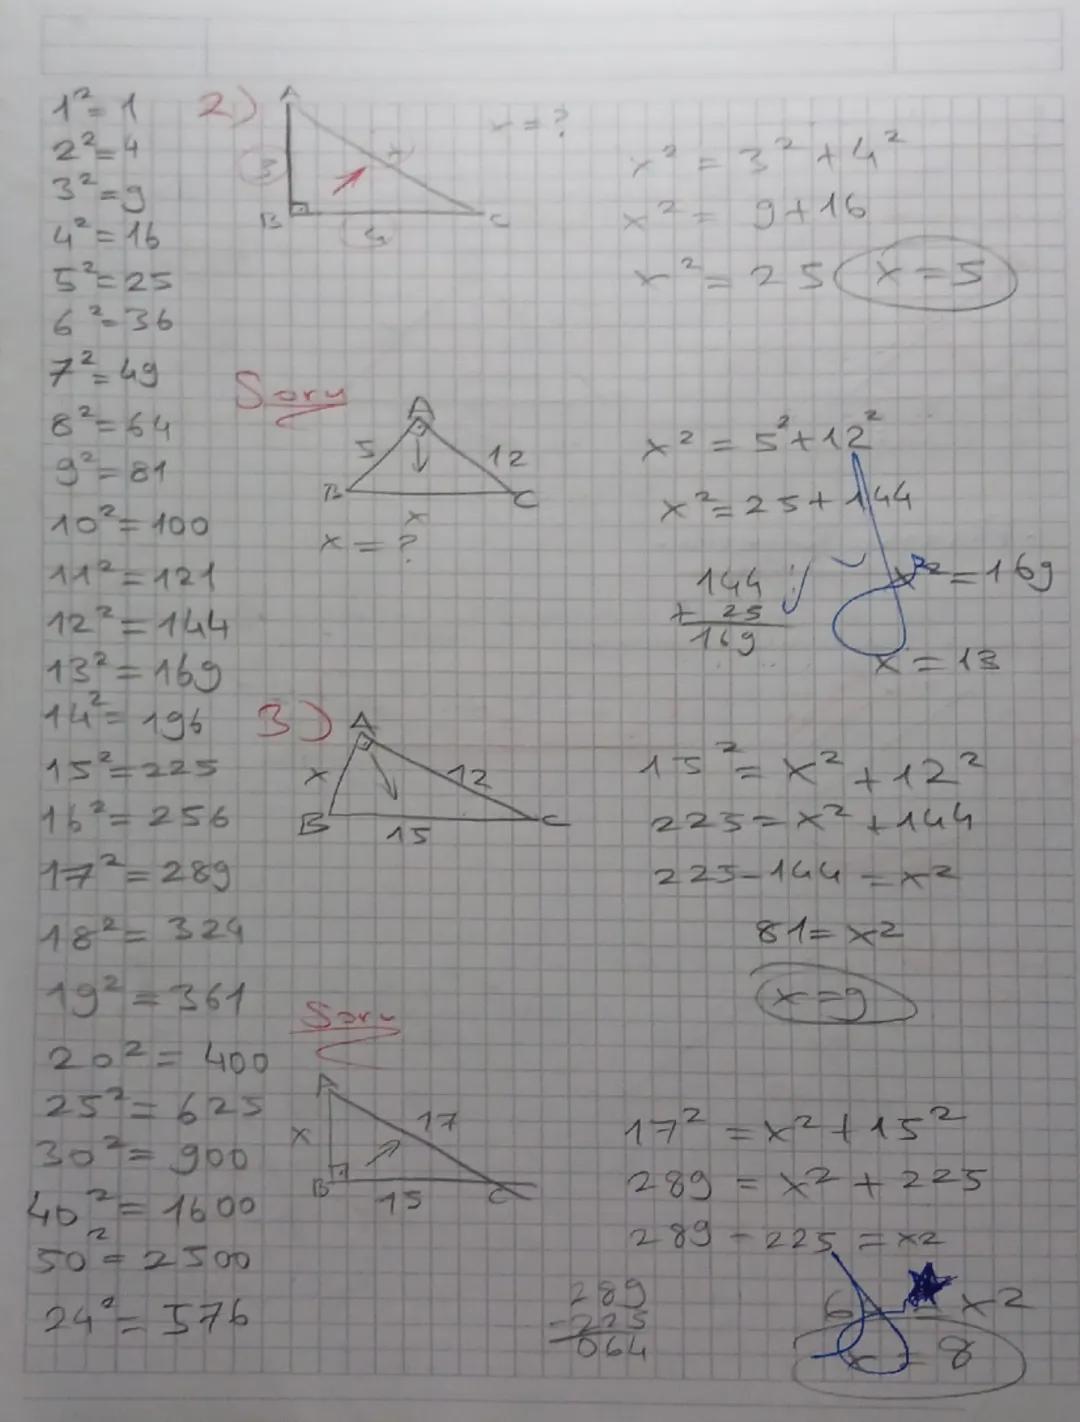 1² = 1
2² = 4
3² = 9
4² = 16
5² = 25
6² = 36
7² = 49
8² = 64
9² = 81
10² = 100
11² = 121
12² = 144
13² = 169
14² = 196
15² = 225
16² = 256
17² = 289
18² = 324
19² = 361
20² = 400
25² = 625
30² = 900
40² = 1600
50² = 2500
24² = 576
2)
A
3
x
B
4
C
x = ?
x² = 3² + 4²
x² = 9 + 16
x² = 25 x = 5
Soru
A
5
12
B
C
x
x = ?
x² = 5² + 12²
x² = 25 + 144
144
+ 25
169
x² = 169
x = 13
3)
A
x
12
B
C
15
15² = x² + 12²
225 = x² + 144
225 - 144 = x²
81 = x²
x = 9
Soru
A
x
17
B
15
C
17² = x² + 15²
289 = x² + 225
289 - 225 = x²
289
-225
064
6 = x²
x = 8